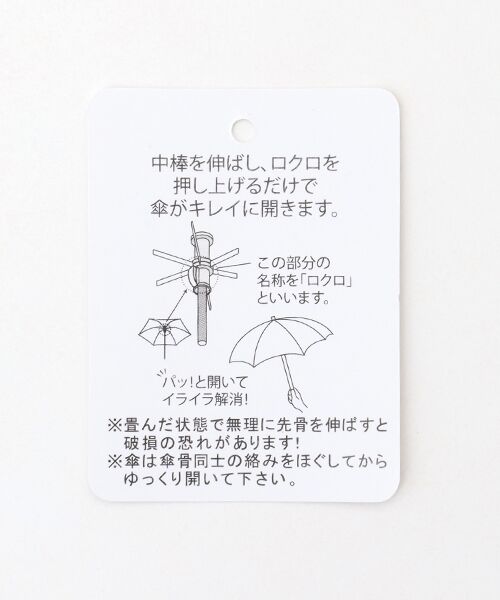 中棒を伸ばし、ロクロを
押し上げるだけで
傘がキレイに開きます。
この部分の
名称を「ロクロ」
といいます。
パッ!と開いて
イライラ解消!
※畳んだ状態で無理に先骨を伸ばすと
破損の恐れがあります!
※傘は傘骨同士の絡みをほぐしてから
ゆっくり開いて下さい。